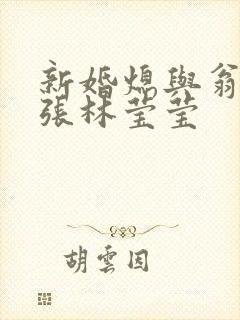 新婚熄與翁
張林莹莹
胡雲因